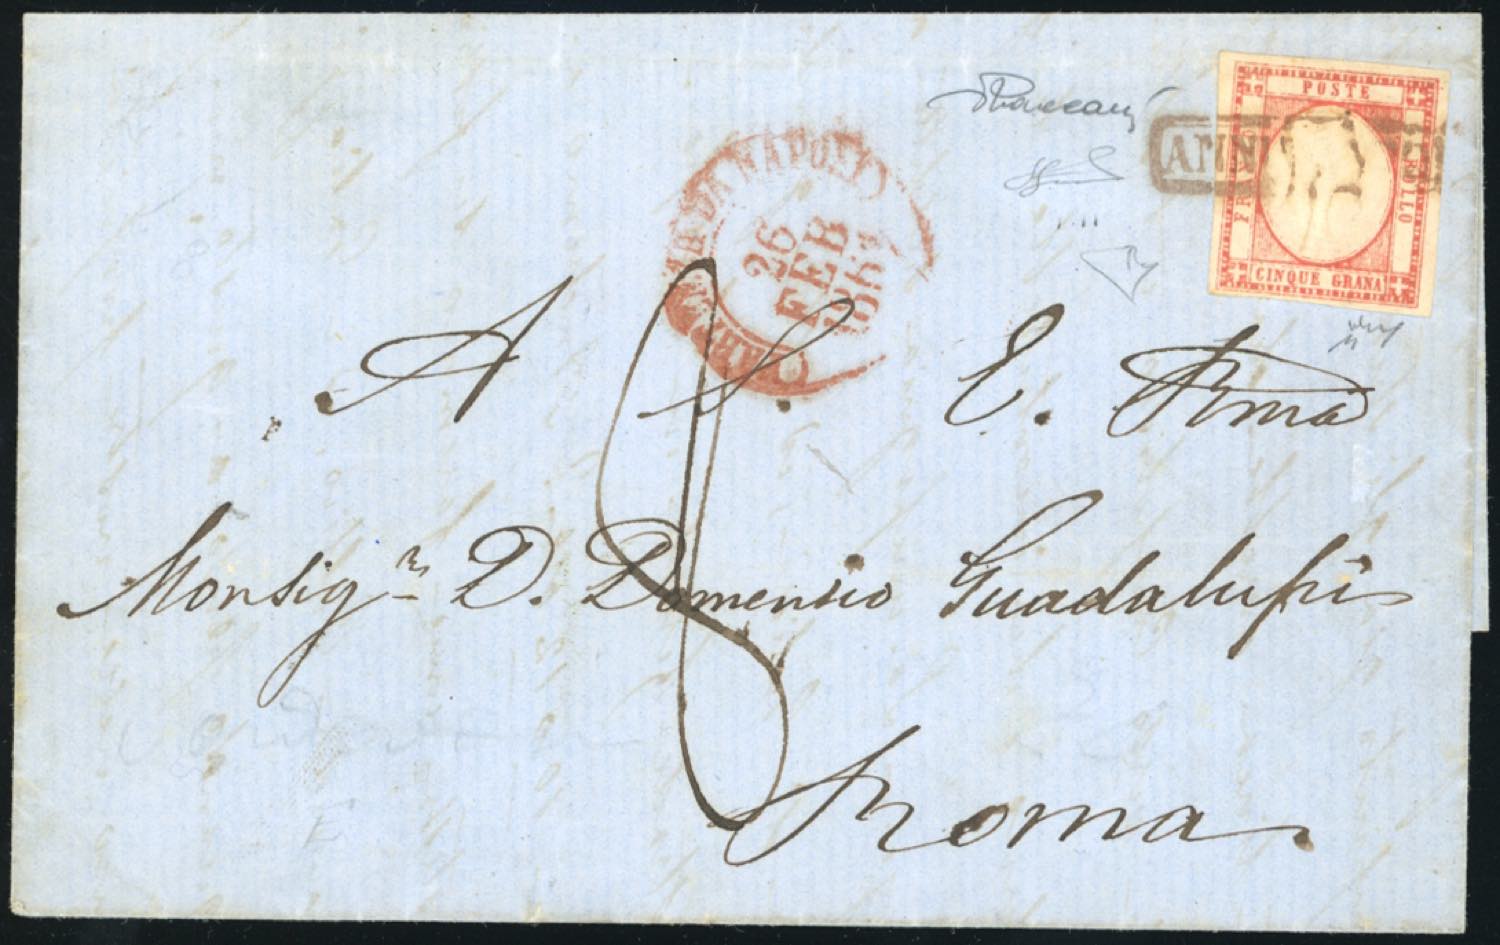 POSTE
FRANCO
BOLLO
CINQUE GRANA
ANN
26
FEB
A S. E. Rma
Monsigr. D. Domenico Guadalupi
Roma.
8